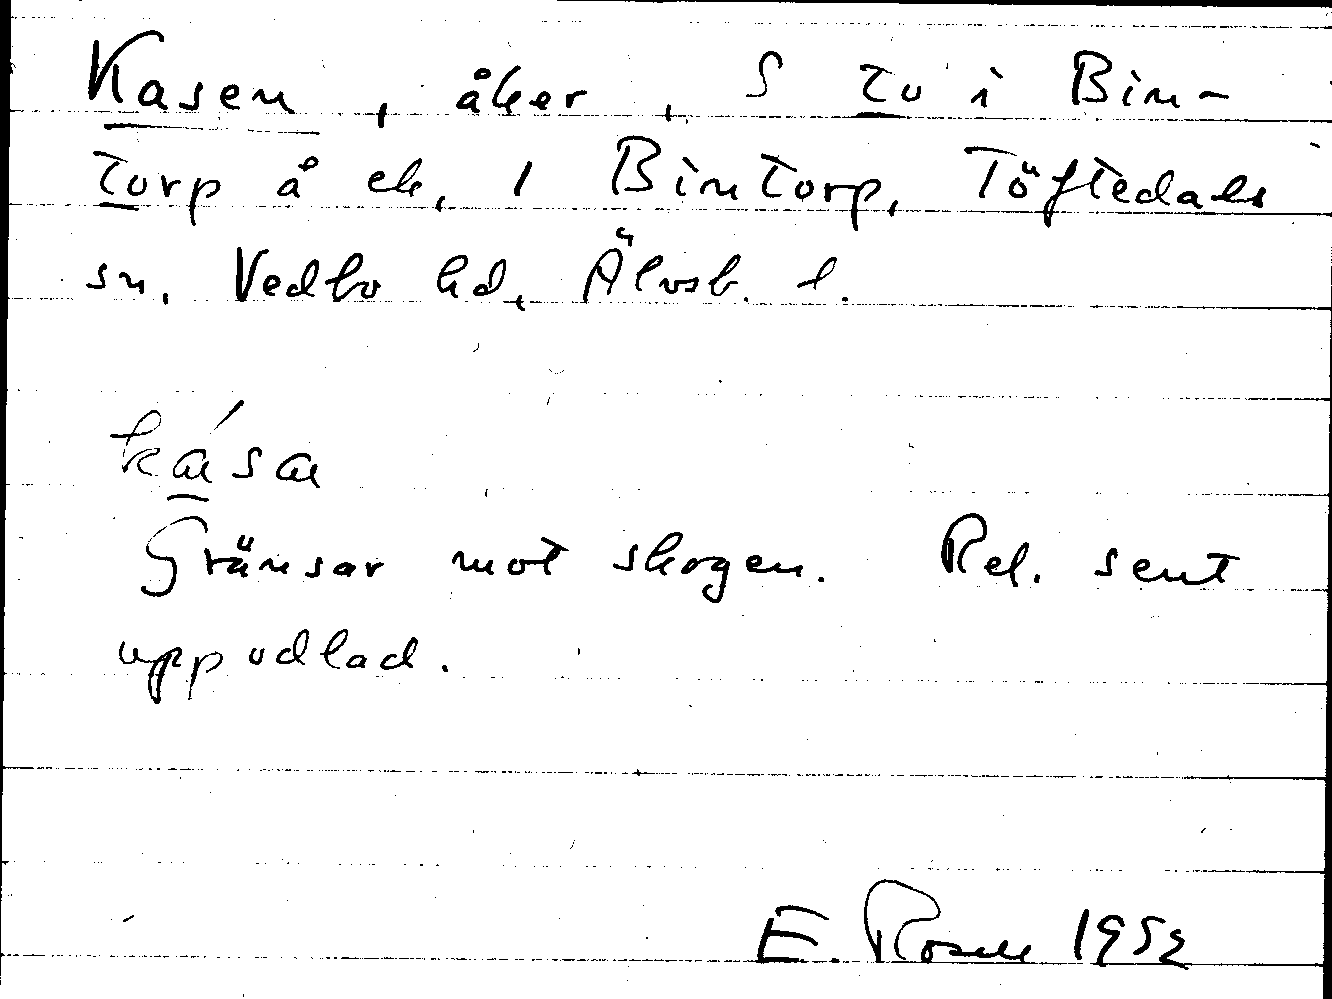 Kasen, åker, S To i Bin-
torp å ek, 1 Bintorp, Töftedals
sn. Vedbo hd, Älvsb. l.
kása
Gränsar mot skogen. Rel. sent
uppodlad.
E. Rosell 1952